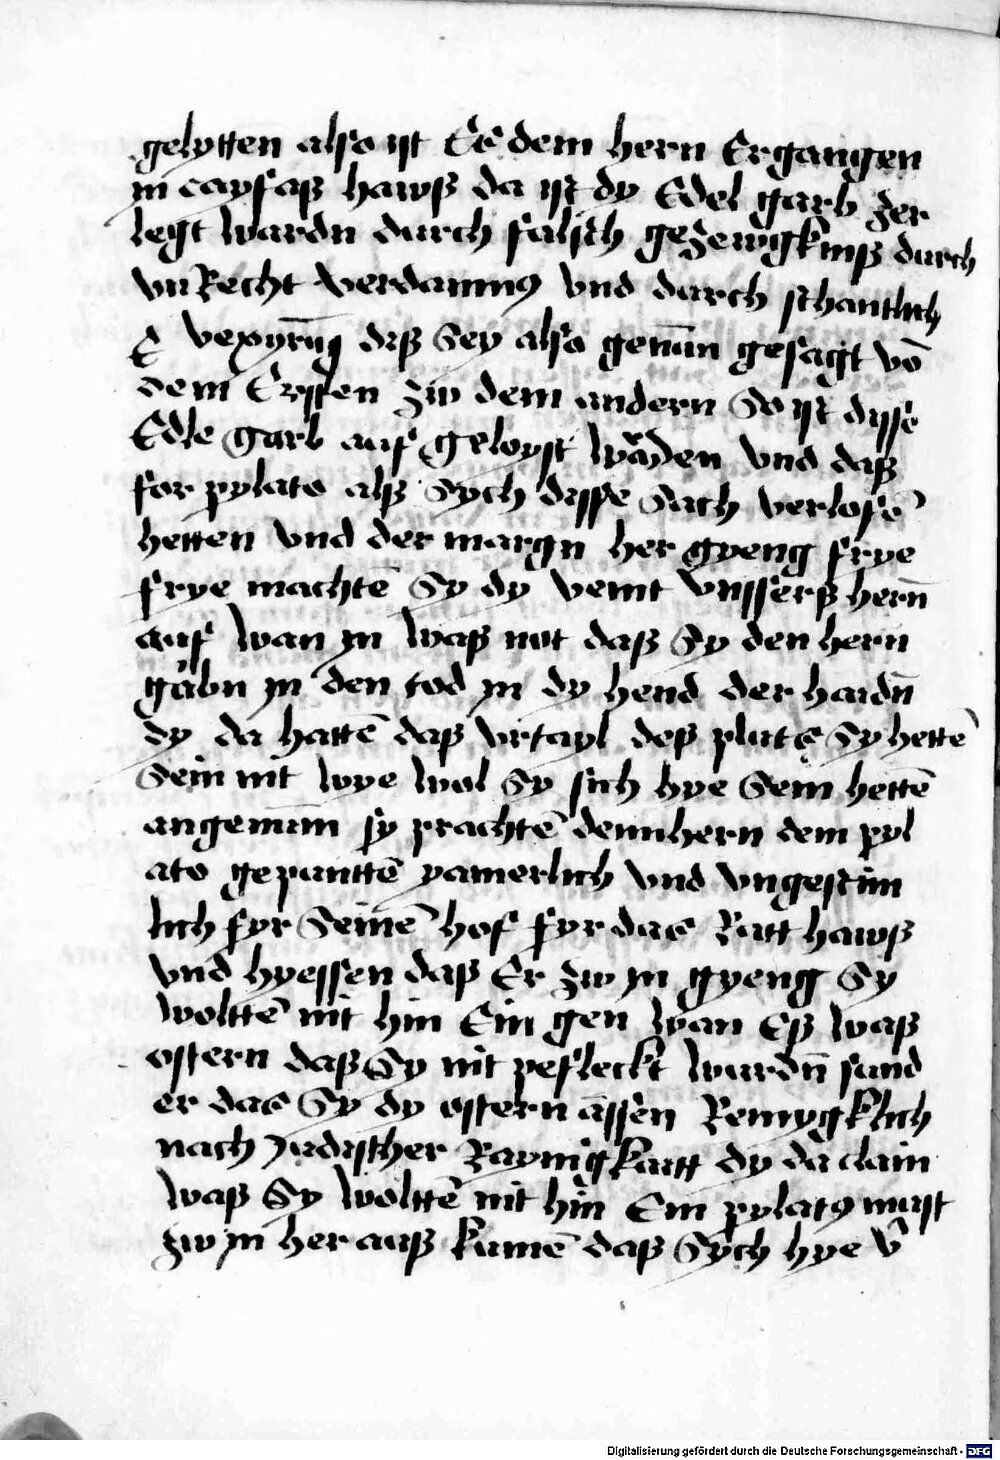 gelytten also ist Es dem hern Ergangen
in cayfaß hawß da ist dy Edel garb zer
legt wardn durch falsch gezewgknuß durch
vnRecht verdamnus vnd durch schantlich
E vexyrūg diß Sey also genūn gesagt vō
dem Ersten zw dem andern So ist disse
Edle garb auf geloyst wāden vnd daß
for pylato alß Sych disse Sach verlofē
hetten vnd der margn her gyeng frye
frye machtē Sy dy veint vnsserß hern̄
auf wan in waß not daß Sy den hern
gabn in den tod in dy hend der haidn̄
dy da hattē daß vrtayl deß plutes Sy hettē
Sein nit wye wol Sy sich hye Sein hettē
angenūm sy prachtē denn hern dem pyl
ato gepunttē yamerlich vnd vngestim
lich fyr Seinē hof fyr das Ratt hawß
vnd hyessen daß Er zw in gyeng Sy
wolttē nit hin Ein gen wan Eß waß
ostern daß Sy nit pefleckt wurdn̄ sund
er das Sy dy ostern assen Remygklich
nach Judischer Raynigkaitt dy da clain
waß Sy wolttē nit hin Ein pylatus must
zw in her auß kumē daß Sych hye v̄
Digitalisierung gefördert durch die Deutsche Forschungsgemeinschaft - DFG